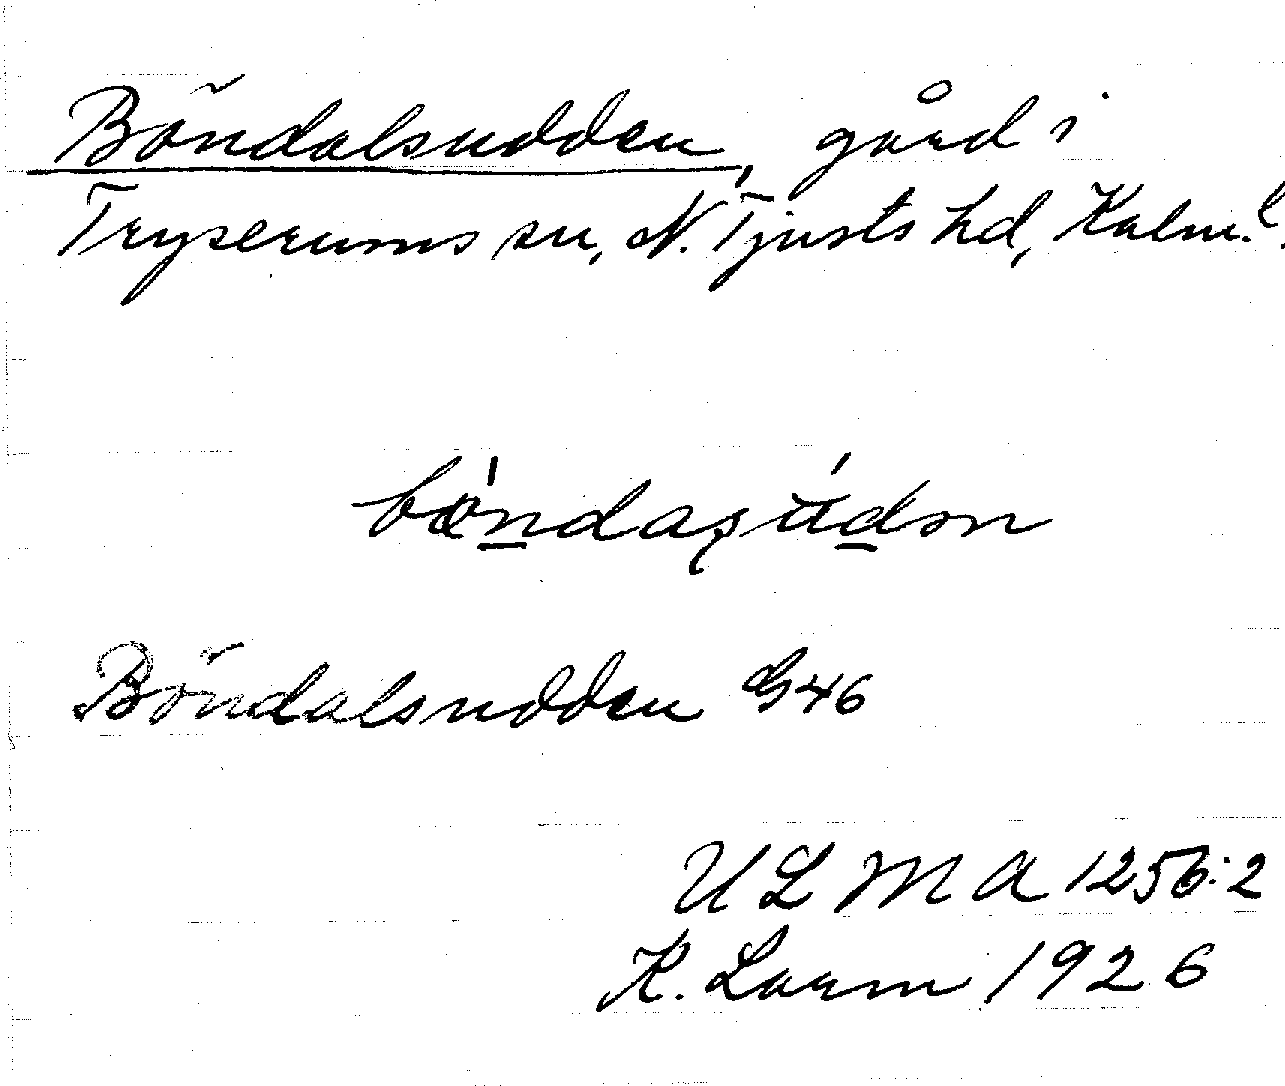 Böndalsudden, gård i
Tryserums sn, N. Tjusts hd, Kalm. l.
Böndalsudden G46
ULMA 1256:2
K. Larm 1926